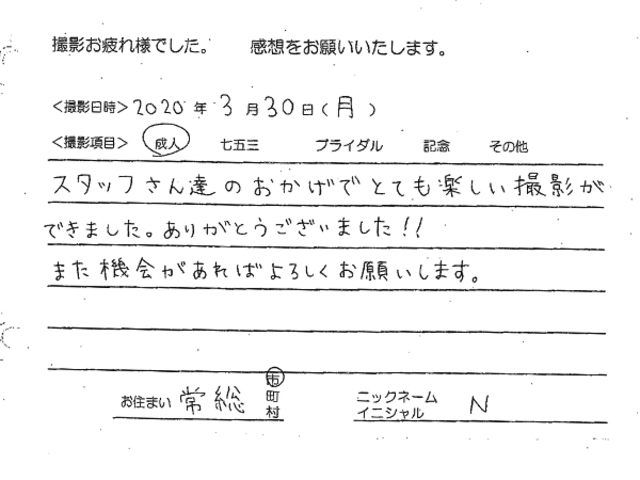 撮影お疲れ様でした。 感想をお願いいたします。
<撮影日時> 2020 年 3 月 30 日 (月)
<撮影項目> 成人 七五三 ブライダル 記念 その他
スタッフさん達のおかげでとても楽しい撮影が
できました。ありがとうございました!!
また機会があればよろしくお願いします。
お住まい 常総 市 町 村
ニックネーム イニシャル N